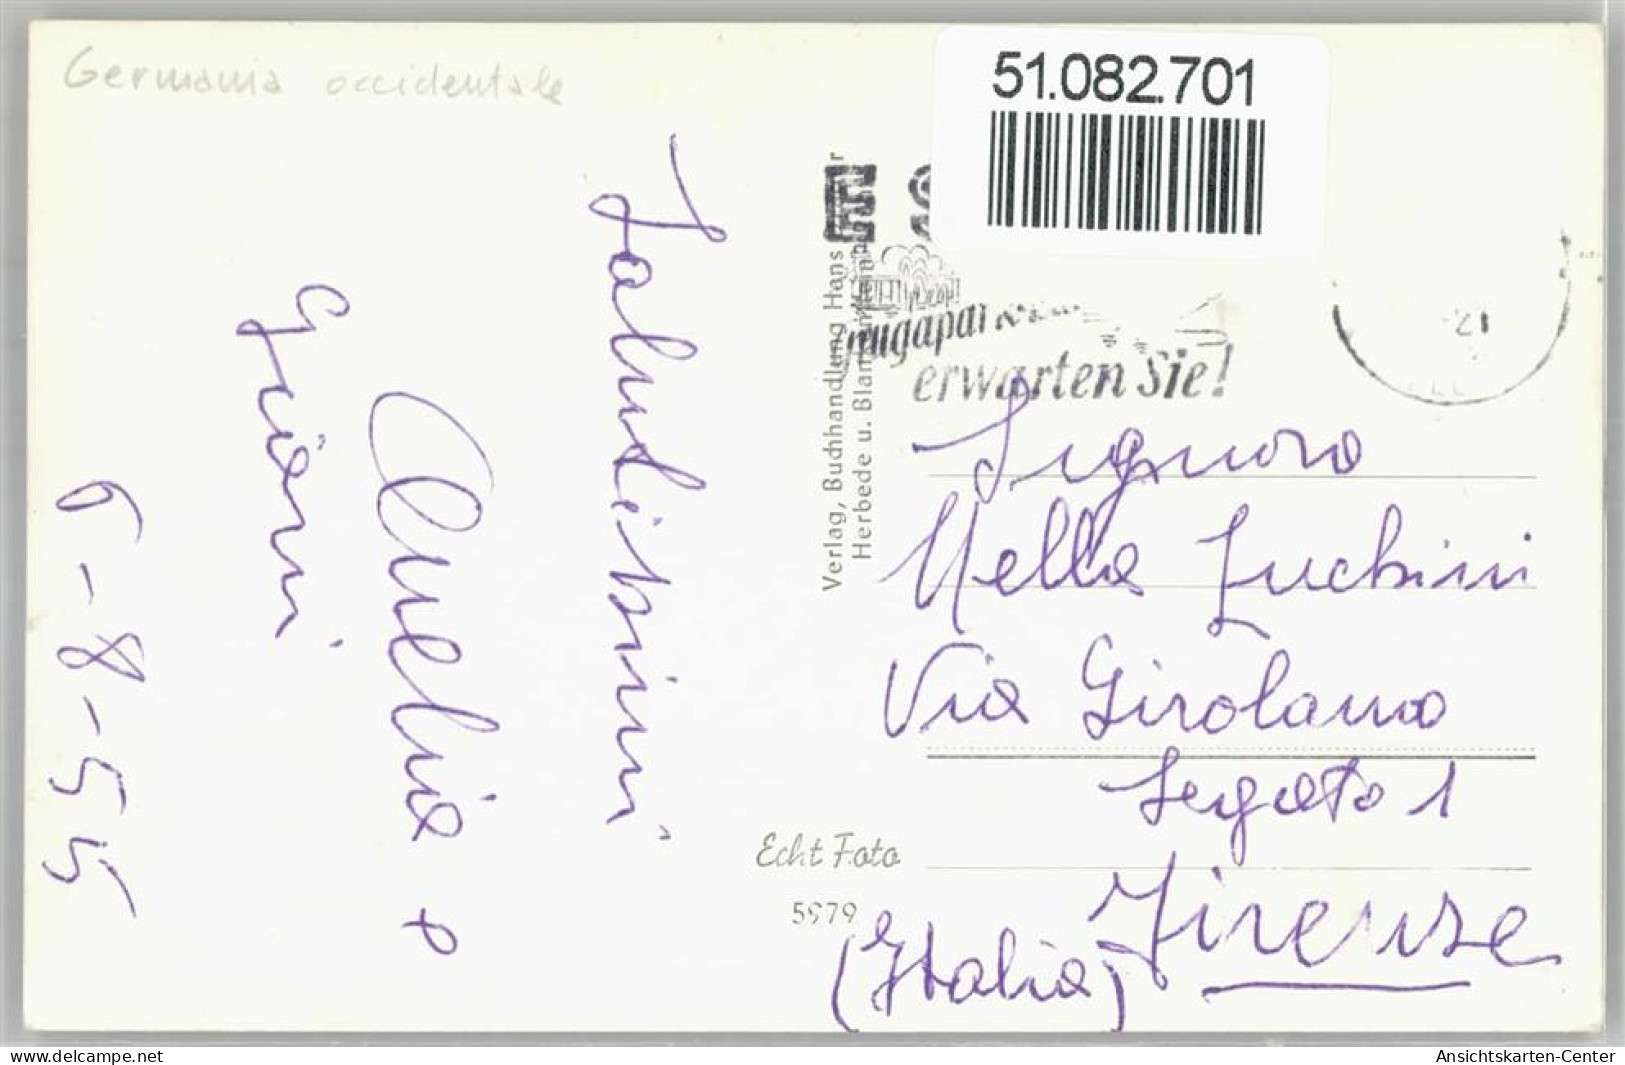 Germania occidentale
51.082.701
Salutissimi
Auelia e
Giani
6-8-55
Verlag, Buchhandlung Hans
Herbede u. Blan
ES
erwarten Sie!
Signora
Nella Luchini
Via Girolamo
Segato 1
Firenze
(Italia)
Echt Foto
5979
delcampe.net
Ansichtskarten-Center